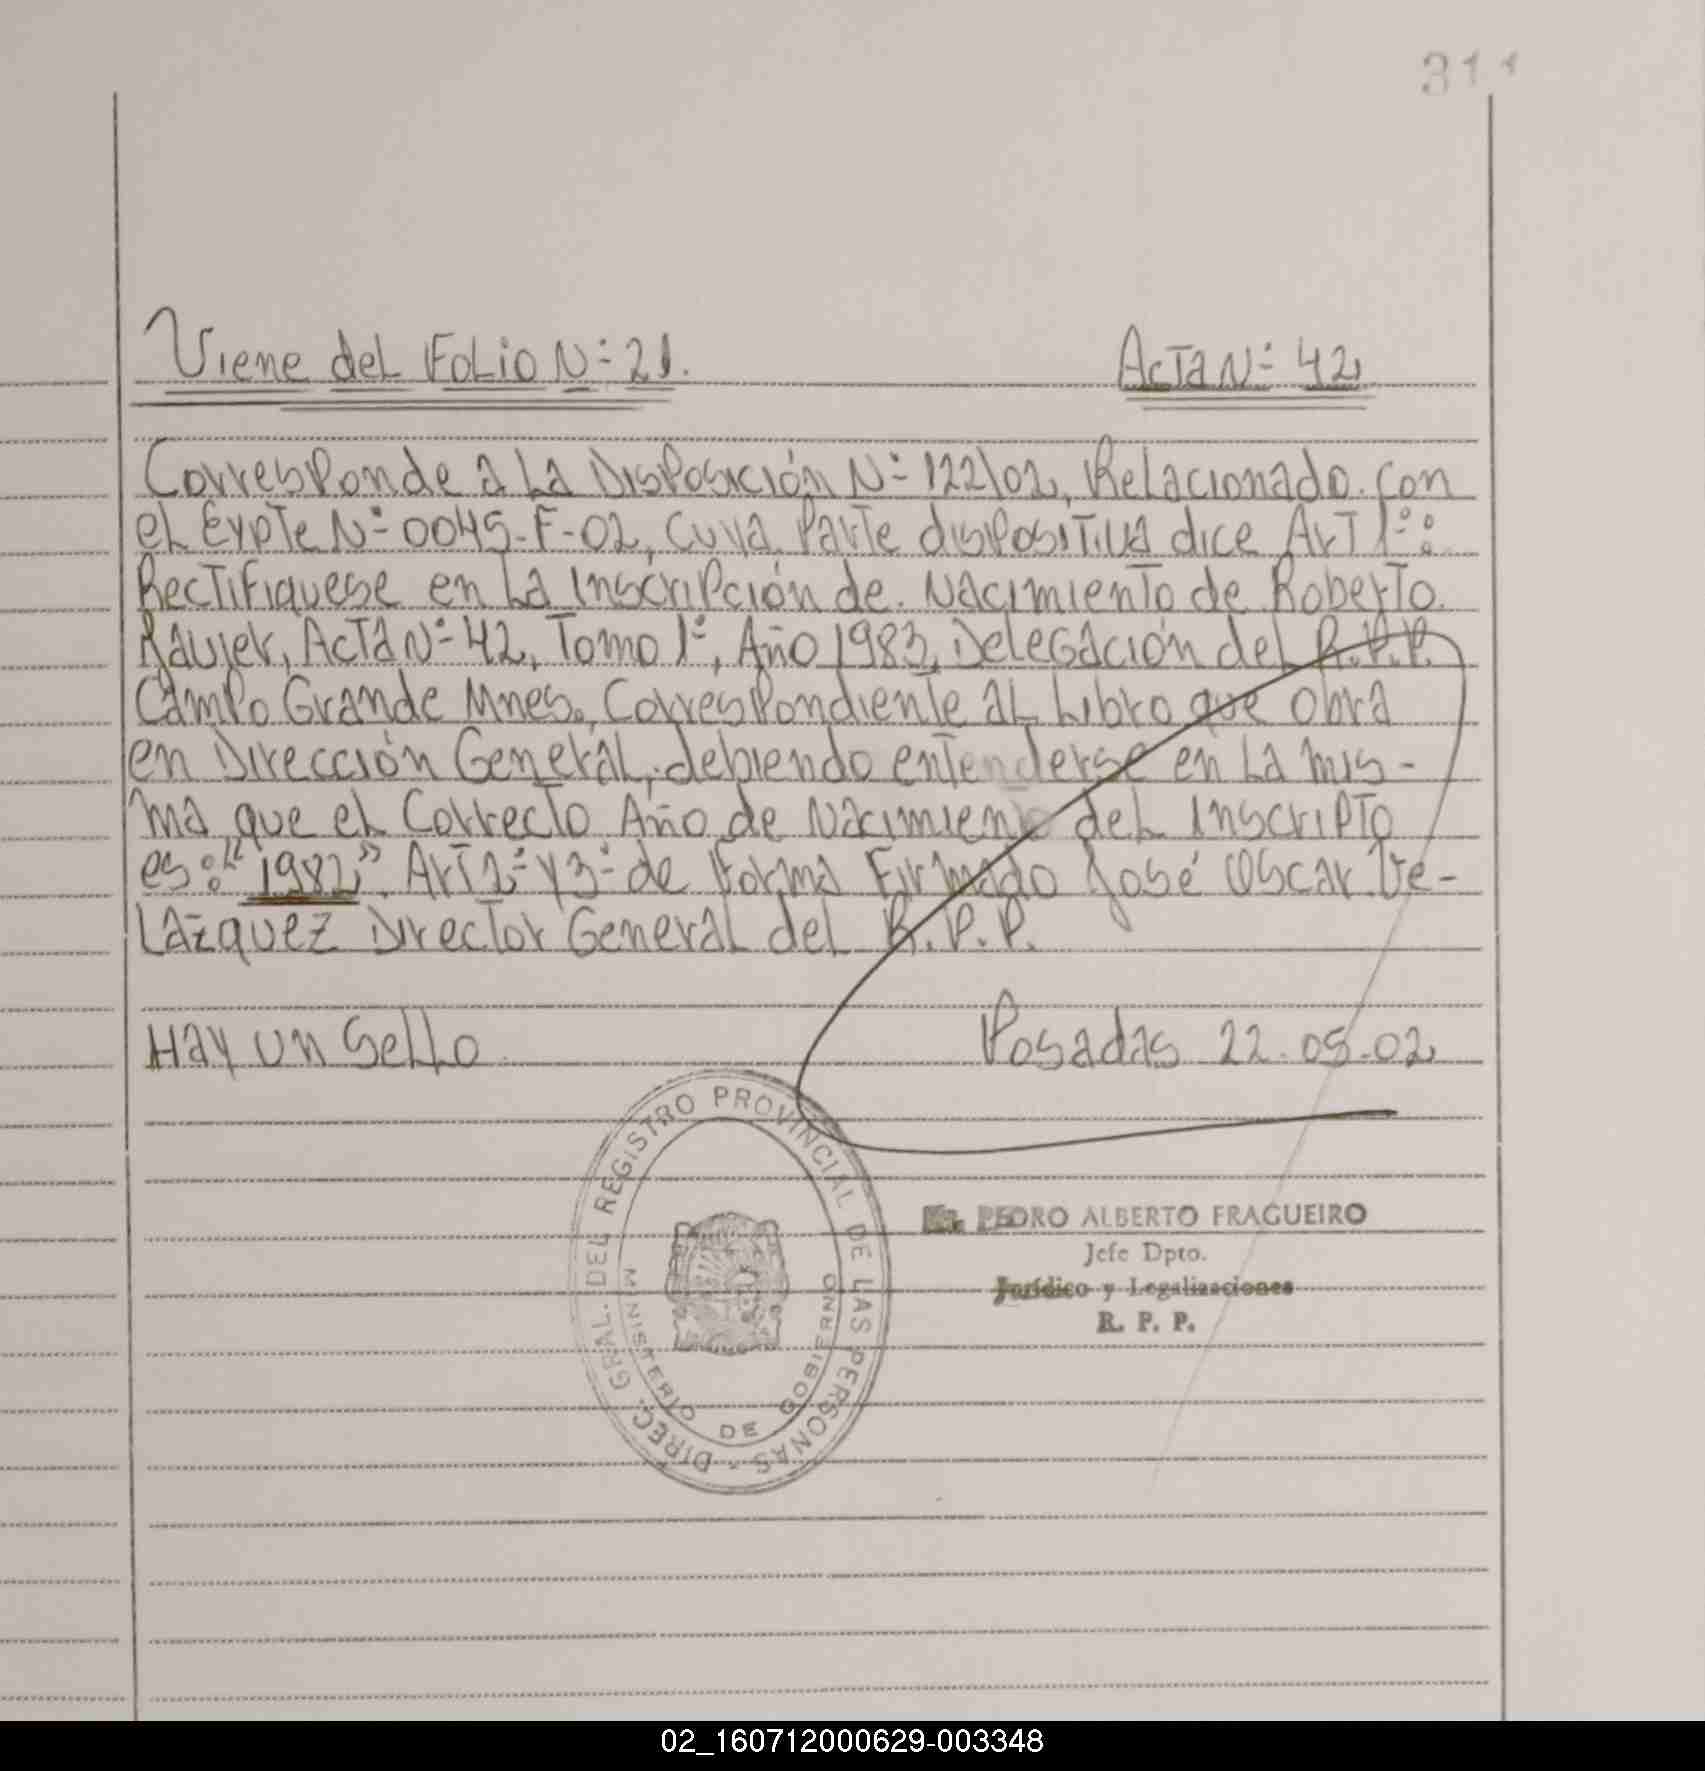 311
Viene del Folio N=21.
Acta N= 42
Corresponde a La Disposición N= 122/02, Relacionado. con
el Expte N= 0045-F-02, cuya Parte dispositiva dice Art 1=:
Rectifiquese en La Inscripción de. Nacimiento de Roberto.
Javier, Acta N=42, Tomo 1=, Año 1983, Delegación del R.P.P.
Campo Grande Mnes., Correspondiente al Libro que obra
en Dirección General, debiendo entenderse en La mis-
ma que el Correcto Año de Nacimiento del Inscripto
es: "1982". Art 2= y 3= de Forma Firmado José Oscar Ve-
Lázquez Director General del R.P.P.
Hay un Sello
Posadas 22.05.02
DIREC. GRAL. DEL REGISTRO PROVINCIAL DE LAS PERSONAS -
MINISTERIO DE GOBIERNO
PEDRO ALBERTO FRAGUEIRO
Jefe Dpto.
Jurídico y Legalizaciones
R. P. P.
02_160712000629-003348